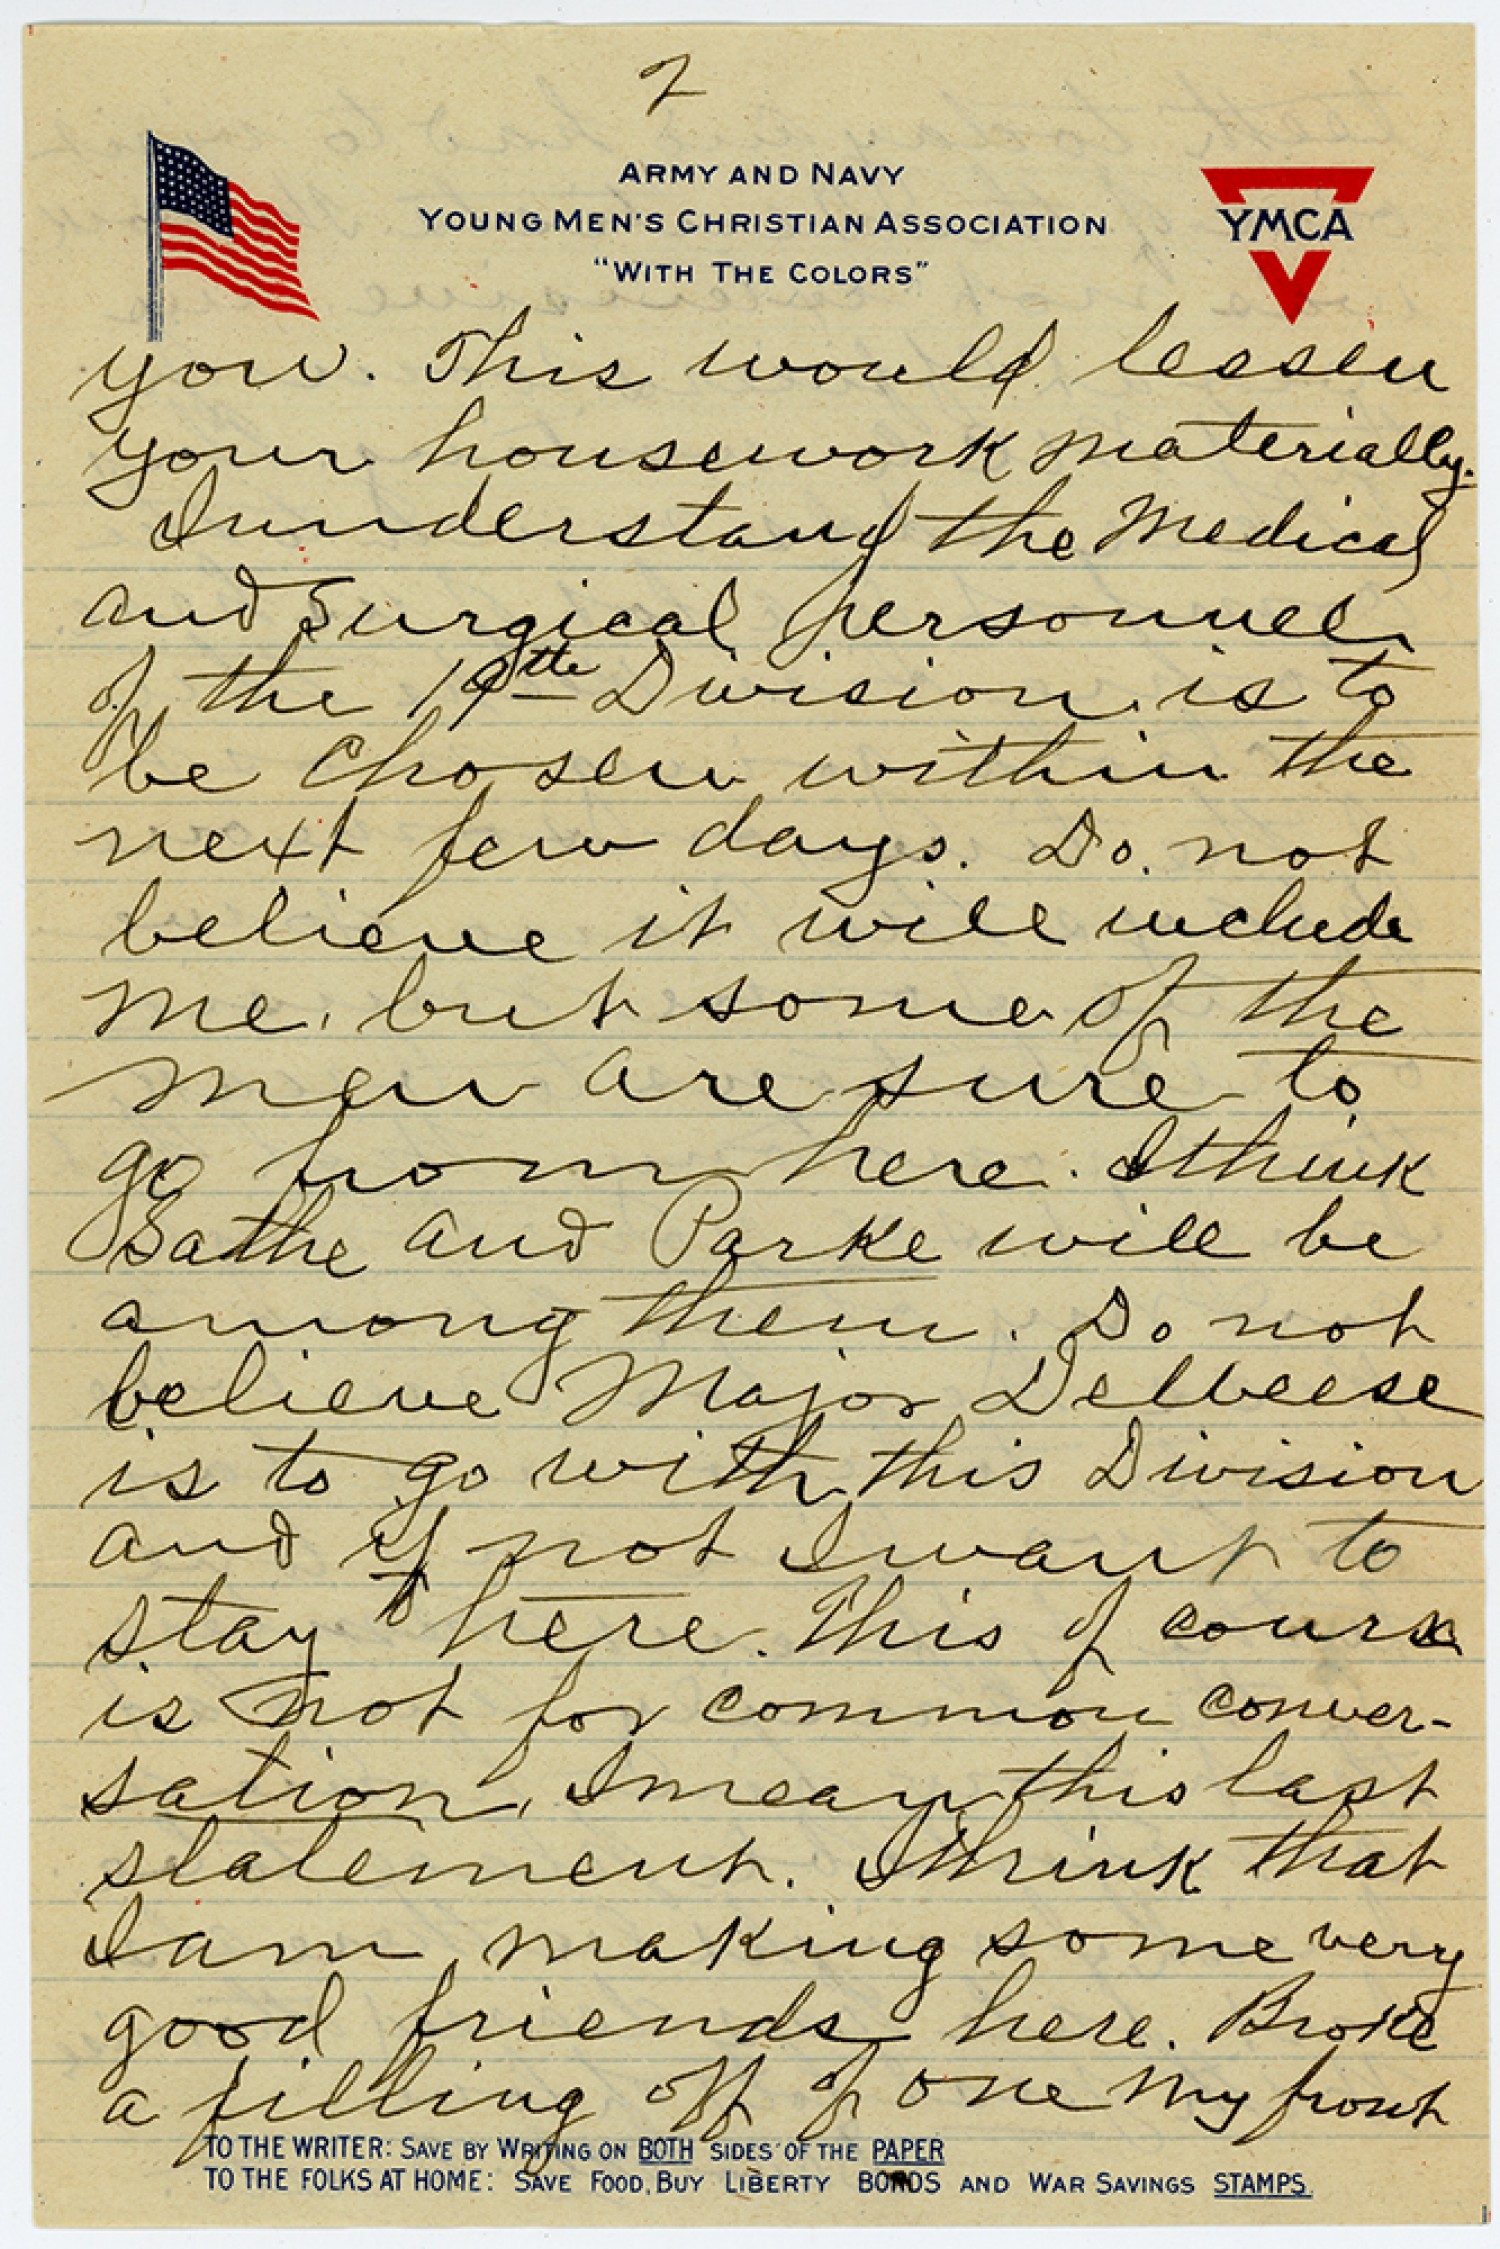 2
ARMY AND NAVY
YOUNG MEN'S CHRISTIAN ASSOCIATION
"WITH THE COLORS"
YMCA
you. This would lessen
your housework materially.
I understand the Medical
and Surgical personnel
of the 19th Division is to
be chosen within the
next few days. Do not
believe it will include
me, but some of the
men are sure to
go from here. I think
Sathe and Parke will be
among them. Do not
believe Major Delbeese
is to go with this Division
and if not I want to
stay here. This of course
is not for common conver-
sation, I mean this last
statement. I think that
I am making some very
good friends here. Broke
a filling off of one my front
TO THE WRITER: SAVE BY WRITING ON BOTH SIDES OF THE PAPER
TO THE FOLKS AT HOME: SAVE FOOD, BUY LIBERTY BONDS AND WAR SAVINGS STAMPS